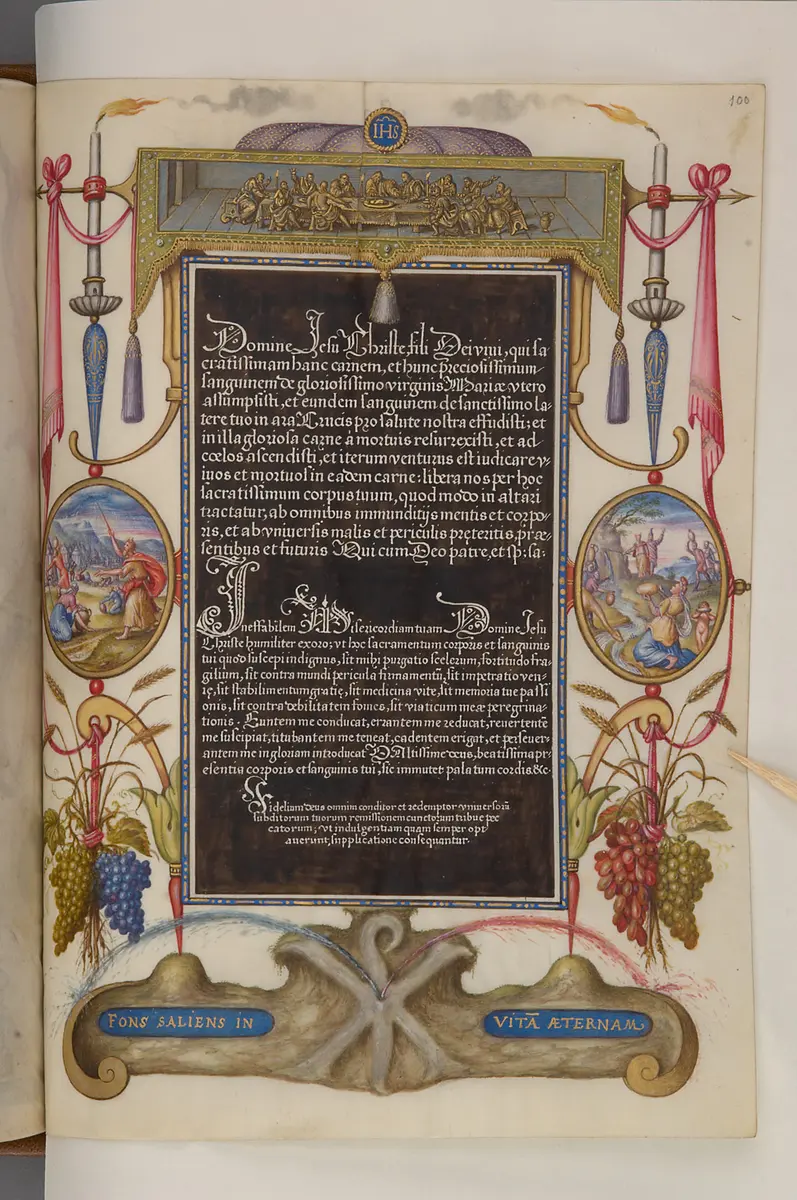 100
IHS
Domine Jesu Christe fili Dei vivi, qui sa
cratissimam hanc carnem, et hunc preciosissimum
sanguinem de gloriosissimo virginis Mariæ vtero
assumpsisti, et eundem sanguinem de sanctissimo la-
tere tuo in ara Crucis pro salute nostra effudisti; et
in illa gloriosa carne à mortuis resurrexisti, et ad
coelos ascendisti, et iterum venturus est iudicare vi-
uos et mortuos in eadem carne: libera nos per hoc
sacratissimum corpus tuum, quod modo in altari
tractatur, ab omnibus immunditijs mentis et corpo-
ris, et ab vniuersis malis et periculis preteritis, præ-
sentibus et futuris Qui cum Deo patre, et sp: sa:
Ineffabilem Misericordiam tuam Domine Jesu
Christe humiliter exoro; vt hoc sacramentum corporis et sanguinis
tui quod suscepi indignus, sit mihi purgatio scelerum, fortitudo fra-
gilium, sit contra mundi pericula firmamentum, sit impetratio ven-
ie, sit stabilimentum gratie, sit medicina vite, sit memoria tue passi
onis, sit contra debilitatem fomes, sit viaticum meæ peregrina-
tionis. Euntem me conducat, errantem me reducat, reuertentē
me suscipiat, titubantem me teneat, cadentem erigat, et perseuer-
antem me in gloriam introducat. O Altissime deus, beatissima pr-
esentia corporis et sanguinis tui, sic immutet palatum cordis &c.
Fidelium deus omnium conditor et redemptor vniuersorū
subditorum tuorum remissionem cunctorum tribue pec
catorum; vt indulgentiam quam semper opt
auerunt, supplicatione consequantur.
FONS SALIENS IN
VITĀ ÆTERNAM